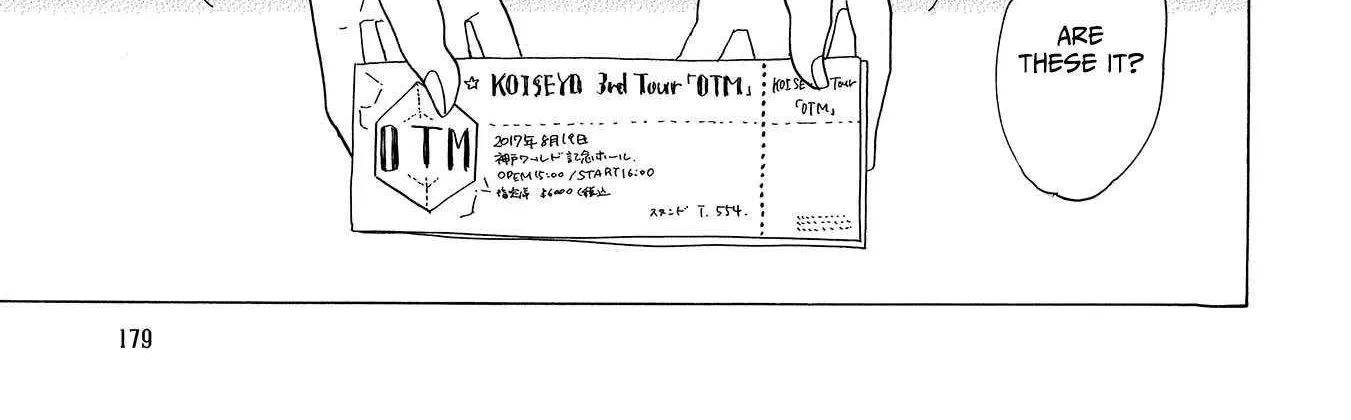 ARE
THESE IT?
☆ KOISEYO 3rd Tour「OTM」
KOISE Tour
「OTM」
OTM
2017年8月19日
神戸ワールド記念ホール.
OPEN 15:00 / START 16:00
指定席 ¥6000 (税込
スタンド T. 554.
179